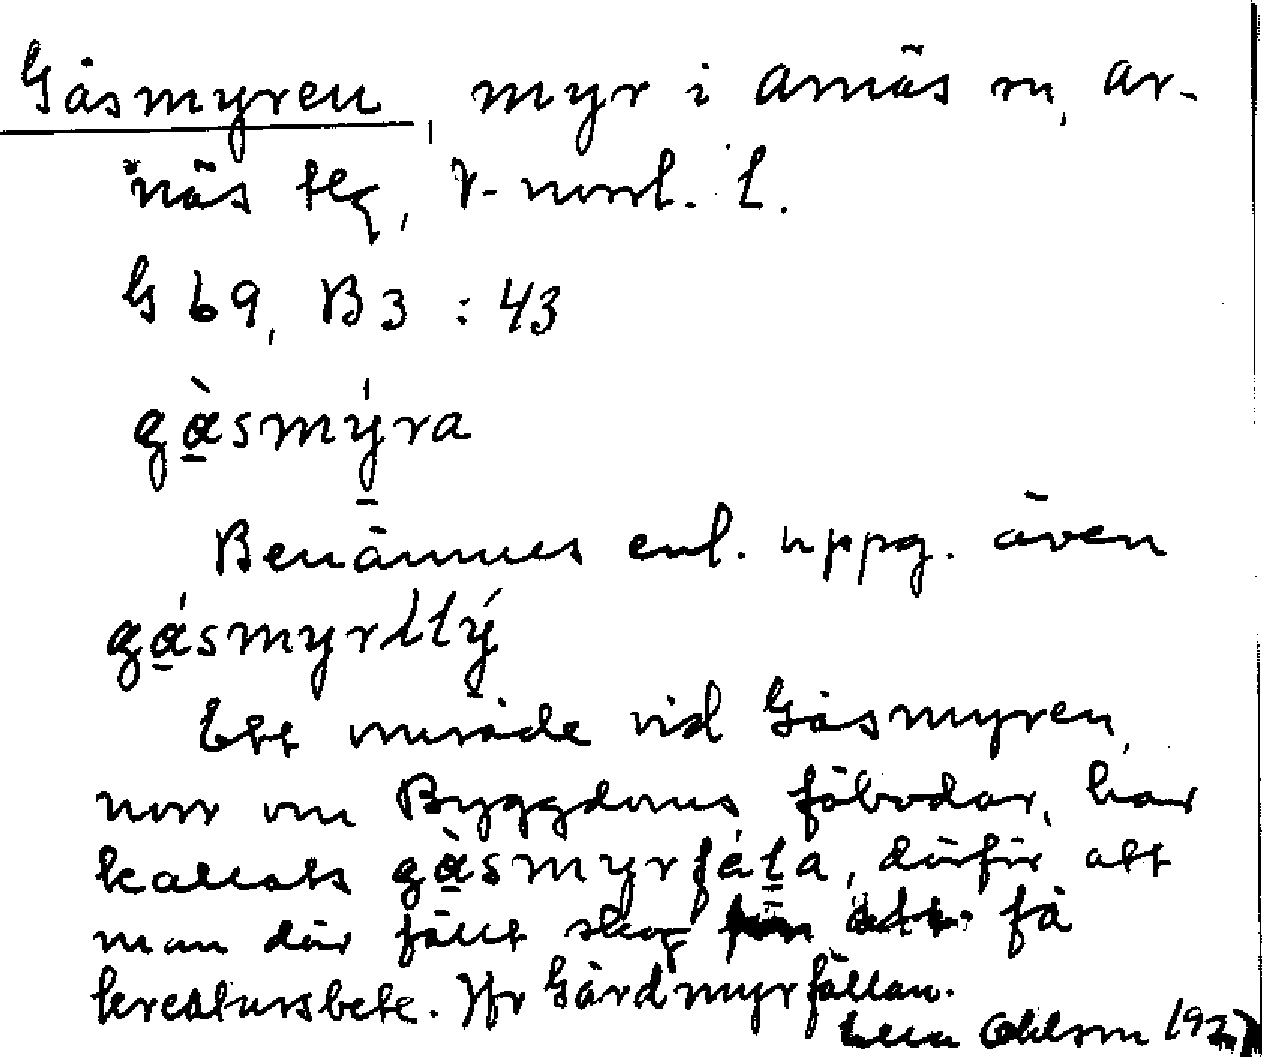 Gåsmyren, myr i Arnäs sn, Ar-
näs tlg, V-norrl. l.
G 69, B3 : 43
gàsmýra
Benämnes enl. uppg. även
gásmyrꞭtý
Ett område vid Gåsmyren,
norr om Byggdoms fäbodar, har
kallats gàsmyrfäḷa, därför att
man där fällt skog för att få
kreatursbete. Jfr Gårdmyrfällan.
Ohlson 192